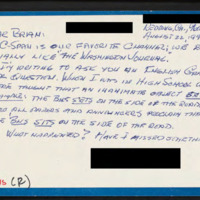 AUGUST 22, 199
R BRIAN:
C-SPAN IS OUR FAVORITE CHANNEL; WE E
IALLY LIKE THE WASHINGTON JOURNAL.
WRITING TO ASK YOU AN ENGLISH GR
QUESTION. WHEN I WAS IN HIGH SCHOOL
TAUGHT THAT AN INANIMATE OBJECT
THE BUS SETS ON THE SIDE OF THE ROAD.
AND ANNOUNCERS PROCLAIM THA
BUS SITS ON THE SIDE OF THE ROAD.
WHAT HAPPENED? HAVE I MISSED SOMETHIN
(R)